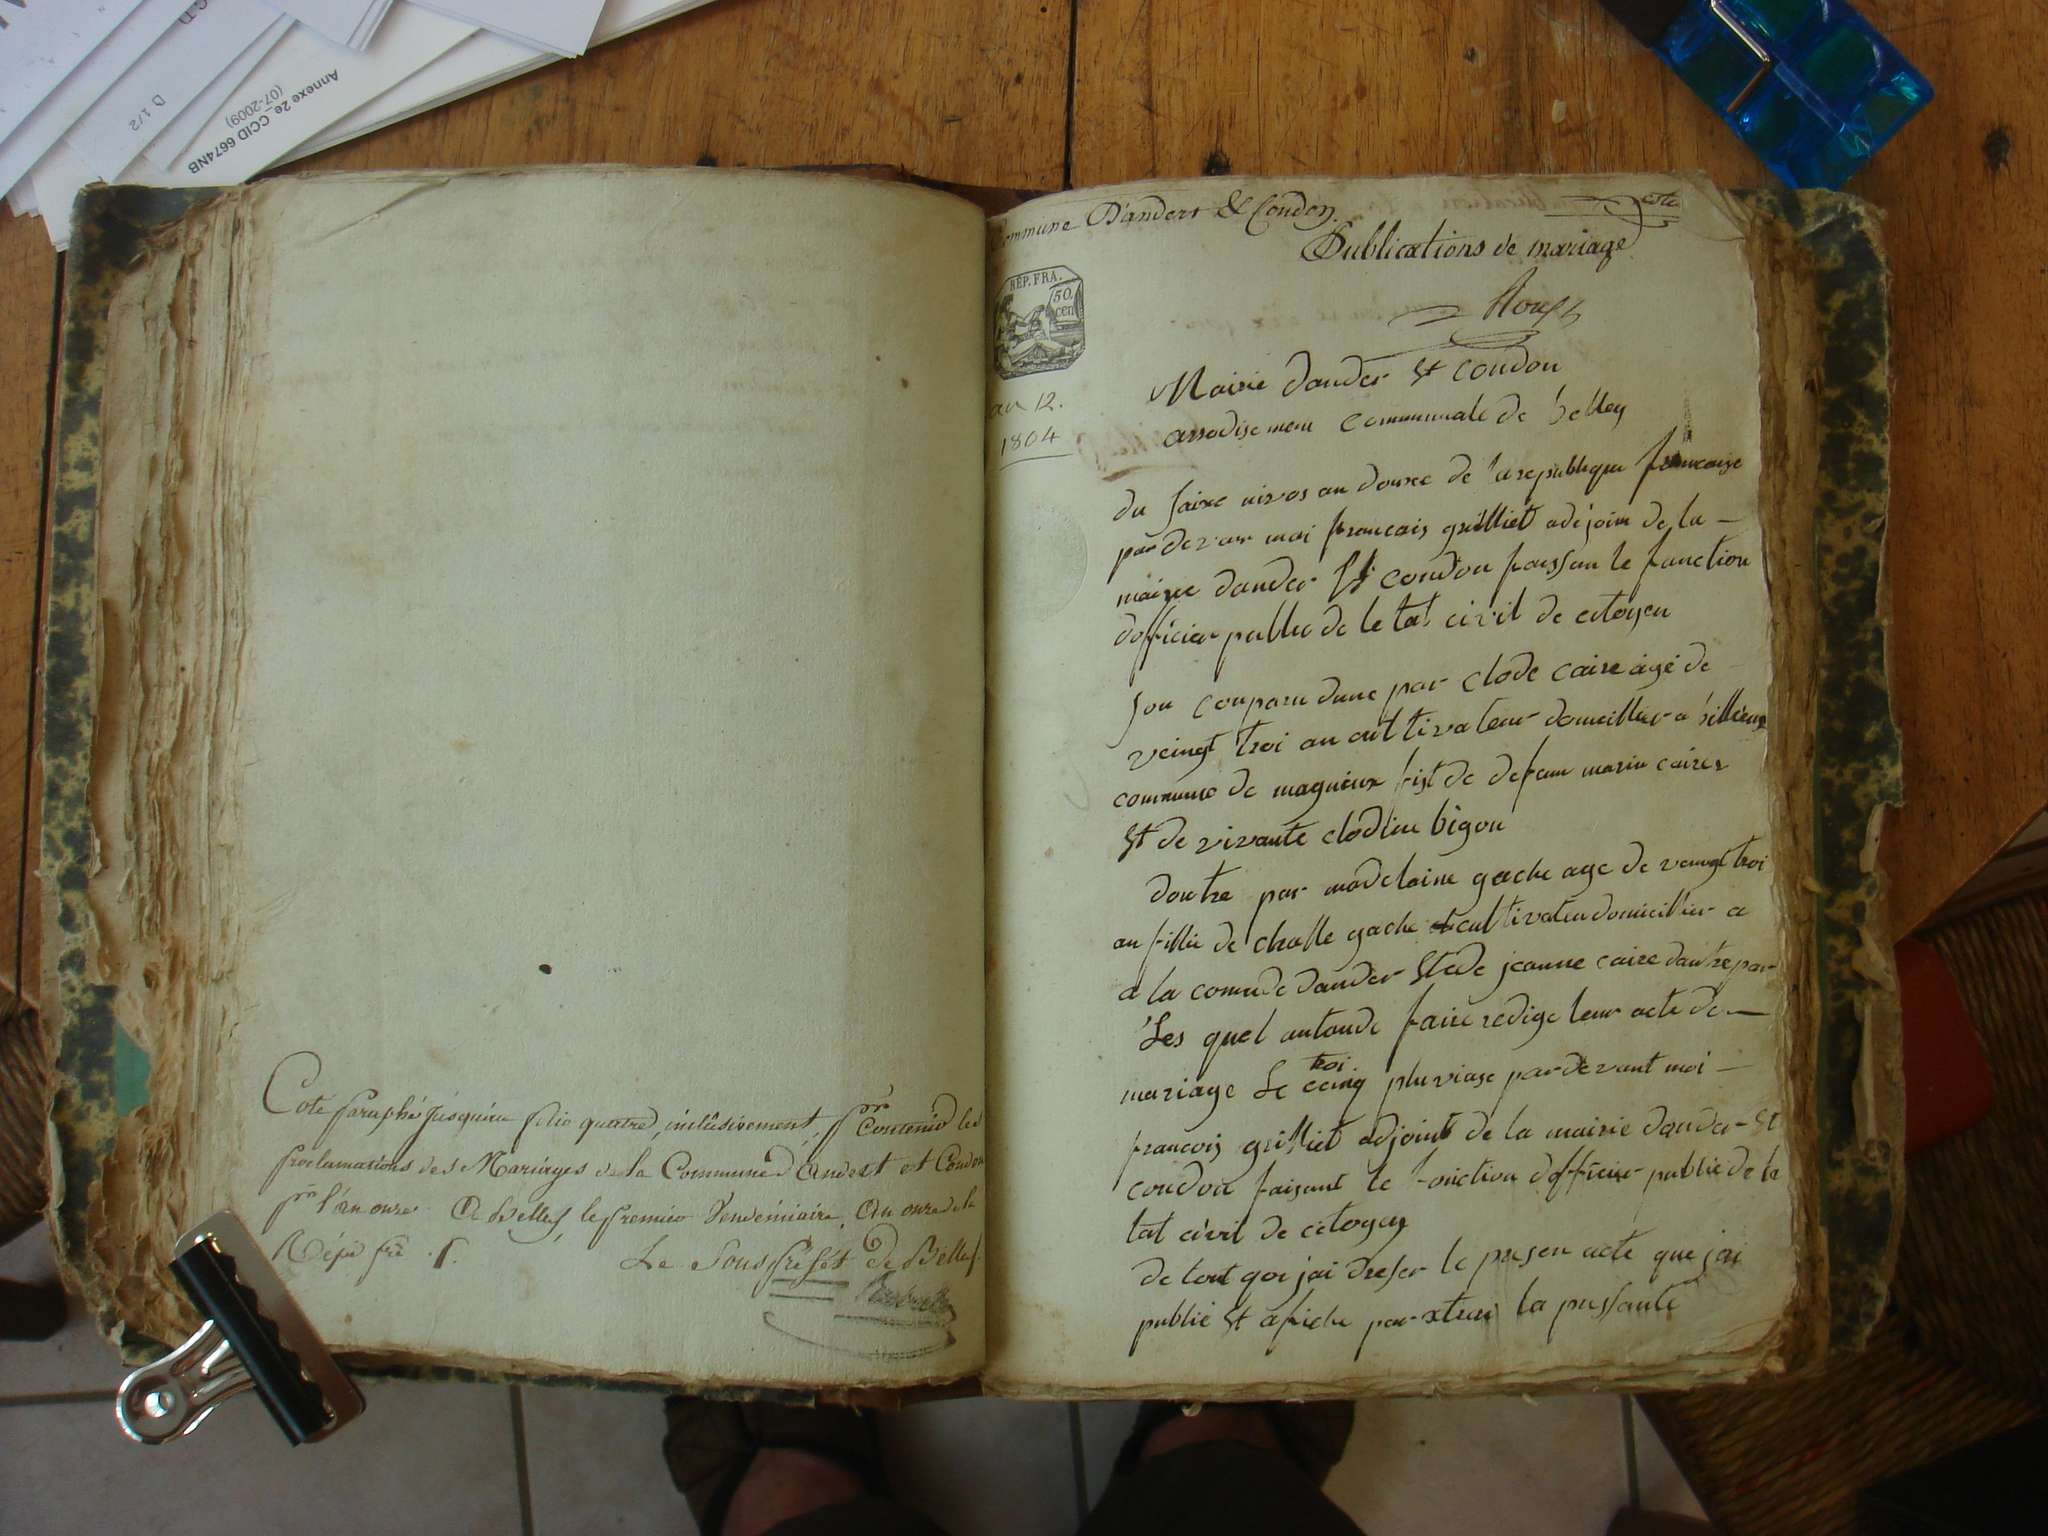 Annexe 2e_CCID 6674NB
(07-2009)
D 1/2
Coté paraphé jusqu'au folio quatre, inclusivement, pr contenir les
proclamations des Mariages de la Commune d'Andert et Condon
pr l'an onze. A Belley, le premier Vendémiaire, an onze de la
Répu fre.
Le Sous préfét de Belley.
Commune D'andert & Condon.
Publications de mariage
RÉP. FRA.
50.
cen
an 12.
1804
Mairie dander St condon
arrodisemene communale de belley
du saixe nivos an douxe de la republique francaize
par devan moi francais grilliet adejoin de la
mairie dander St condon faissan le fonction
dofficier publie de le tat civil de citoyen
son conparu dune par clode caire agé de
veingt troi an cultivateur domicillier a billieux
commune de magnieux fist de defeun marin caires
St de vivante clodine bigon
dautre par madelaine gache age de veingt troi
an fillie de challe gache cultivateu domicillier a
a la comude dander St de jeanne caire dautre par
Les quel antande faire redige leur acte de
mariage Le troi ceinq pluviase pardevant moi
francois grilliet adjoint de la mairie dander St
condon faisant le fonction dofficier publie de le
tat civil de citoyen
de tout qoi jai dreser le presen acte que jai
publié St afiche par xtrai la pressante